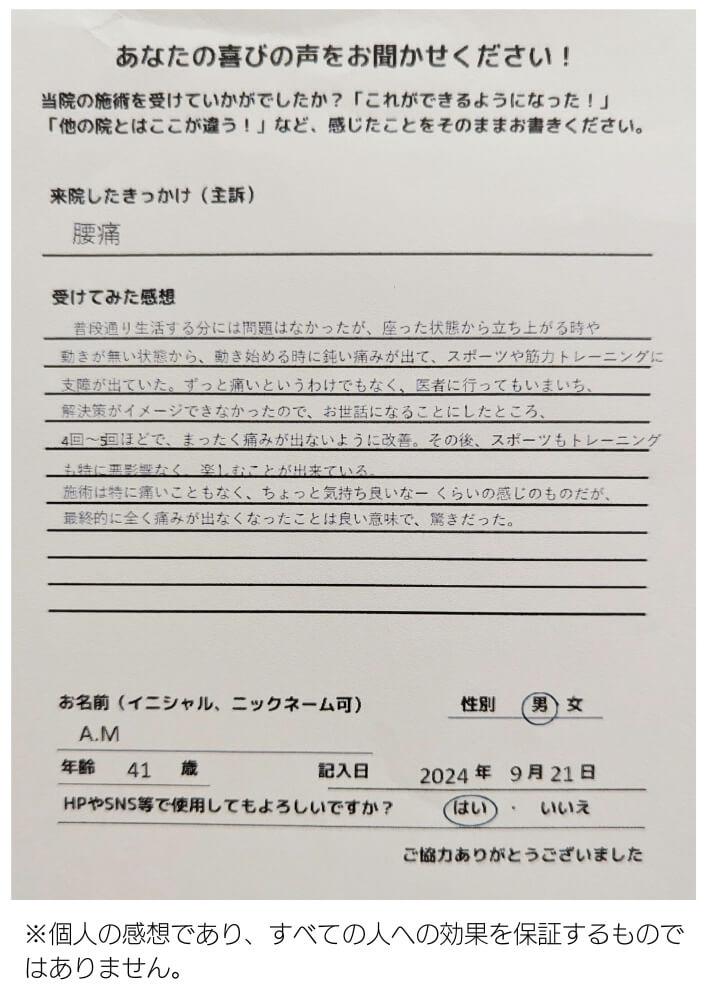 あなたの喜びの声をお聞かせください！
当院の施術を受けていかがでしたか？「これができるようになった！」
「他の院とはここが違う！」など、感じたことをそのままお書きください。
来院したきっかけ（主訴）
腰痛
受けてみた感想
普段通り生活する分には問題はなかったが、座った状態から立ち上がる時や
動きが無い状態から、動き始める時に鈍い痛みが出て、スポーツや筋力トレーニングに
支障が出ていた。ずっと痛いというわけでもなく、医者に行ってもいまいち、
解決策がイメージできなかったので、お世話になることにしたところ、
4回～5回ほどで、まったく痛みが出ないように改善。その後、スポーツもトレーニング
も特に悪影響なく、楽しむことが出来ている。
施術は特に痛いこともなく、ちょっと気持ち良いなー くらいの感じのものだが、
最終的に全く痛みが出なくなったことは良い意味で、驚きだった。
お名前（イニシャル、ニックネーム可） 性別 男・女
A.M
年齢 41 歳 記入日 2024 年 9 月 21 日
HPやSNS等で使用してもよろしいですか？ はい ・ いいえ
ご協力ありがとうございました
※個人の感想であり、すべての人への効果を保証するもので
はありません。